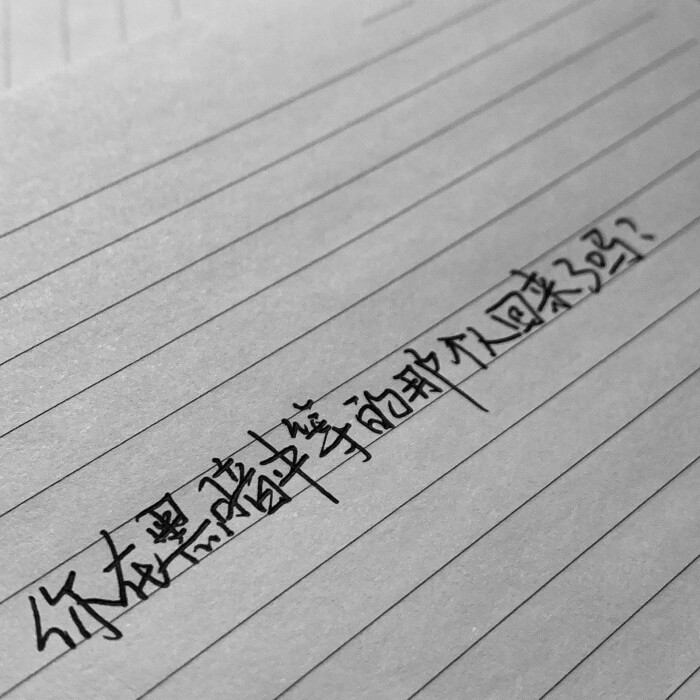 你在黑暗中等的那个人回来了吗?